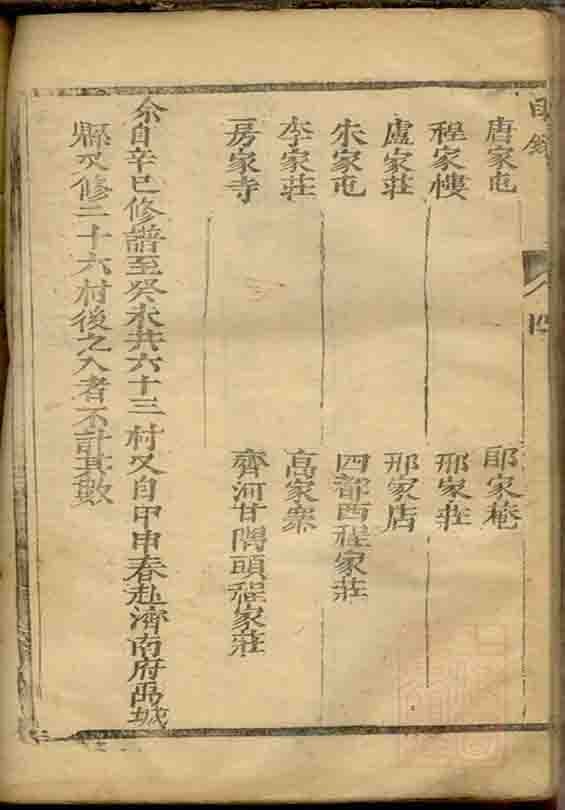 目錄
唐家屯
郎家菴
程家樓
邢家莊
盧家莊
邢家店
朱家屯
四都西程家莊
李家莊
高家寨
房家寺
齊河甘隅頭程家莊
余自辛巳修譜至癸未共六十三村又自甲申春赴濟南府禹城
縣又修二十六村後之入者不計其數